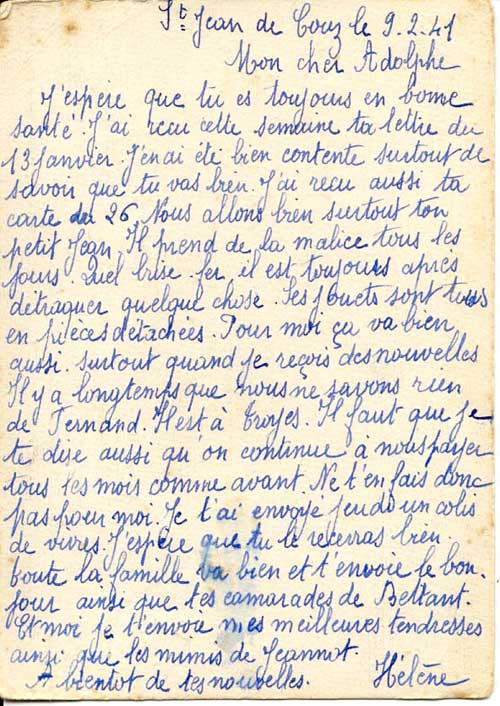 St Jean de Couz le 9.2.41
Mon cher Adolphe
J'espère que tu es toujours en bonne
santé. J'ai reçu cette semaine ta lettre du
13 janvier. J'en ai été bien contente surtout de
savoir que tu vas bien. J'ai recu aussi ta
carte du 26. Nous allons bien surtout ton
petit Jean. Il prend de la malice tous les
jours. Quel brise-fer, il est toujours après
détraquer quelque chose. Ses jouets sont tous
en pièces détachées. Pour moi ça va bien
aussi. surtout quand je reçois des nouvelles
Il y a longtemps que nous ne savons rien
de Fernand. Il est à Troyes. Il faut que je
te dise aussi qu'on continue à nous payer
tous les mois comme avant. Ne t'en fais donc
pas pour moi. Je t'ai envoyé jeudi un colis
de vivres. J'espère que tu le recevras bien.
Toute la famille va bien et t'envoie le bon-
jour ainsi que tes camarades de Bettant.
Et moi je t'envoie mes meilleures tendresses
ainsi que les mimis de Jeannot.
A bientot de tes nouvelles. Hélène